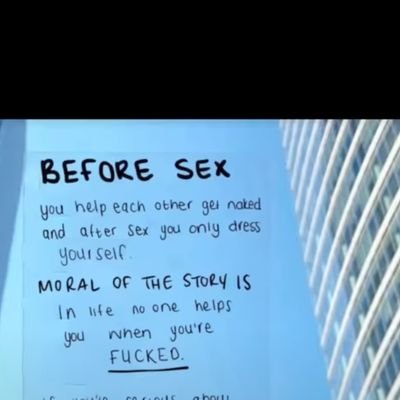 BEFORE SEX
you help each other get naked
and after sex you only dress
yourself.
MORAL OF THE STORY IS
In life no one helps
you when you're
FUCKED.